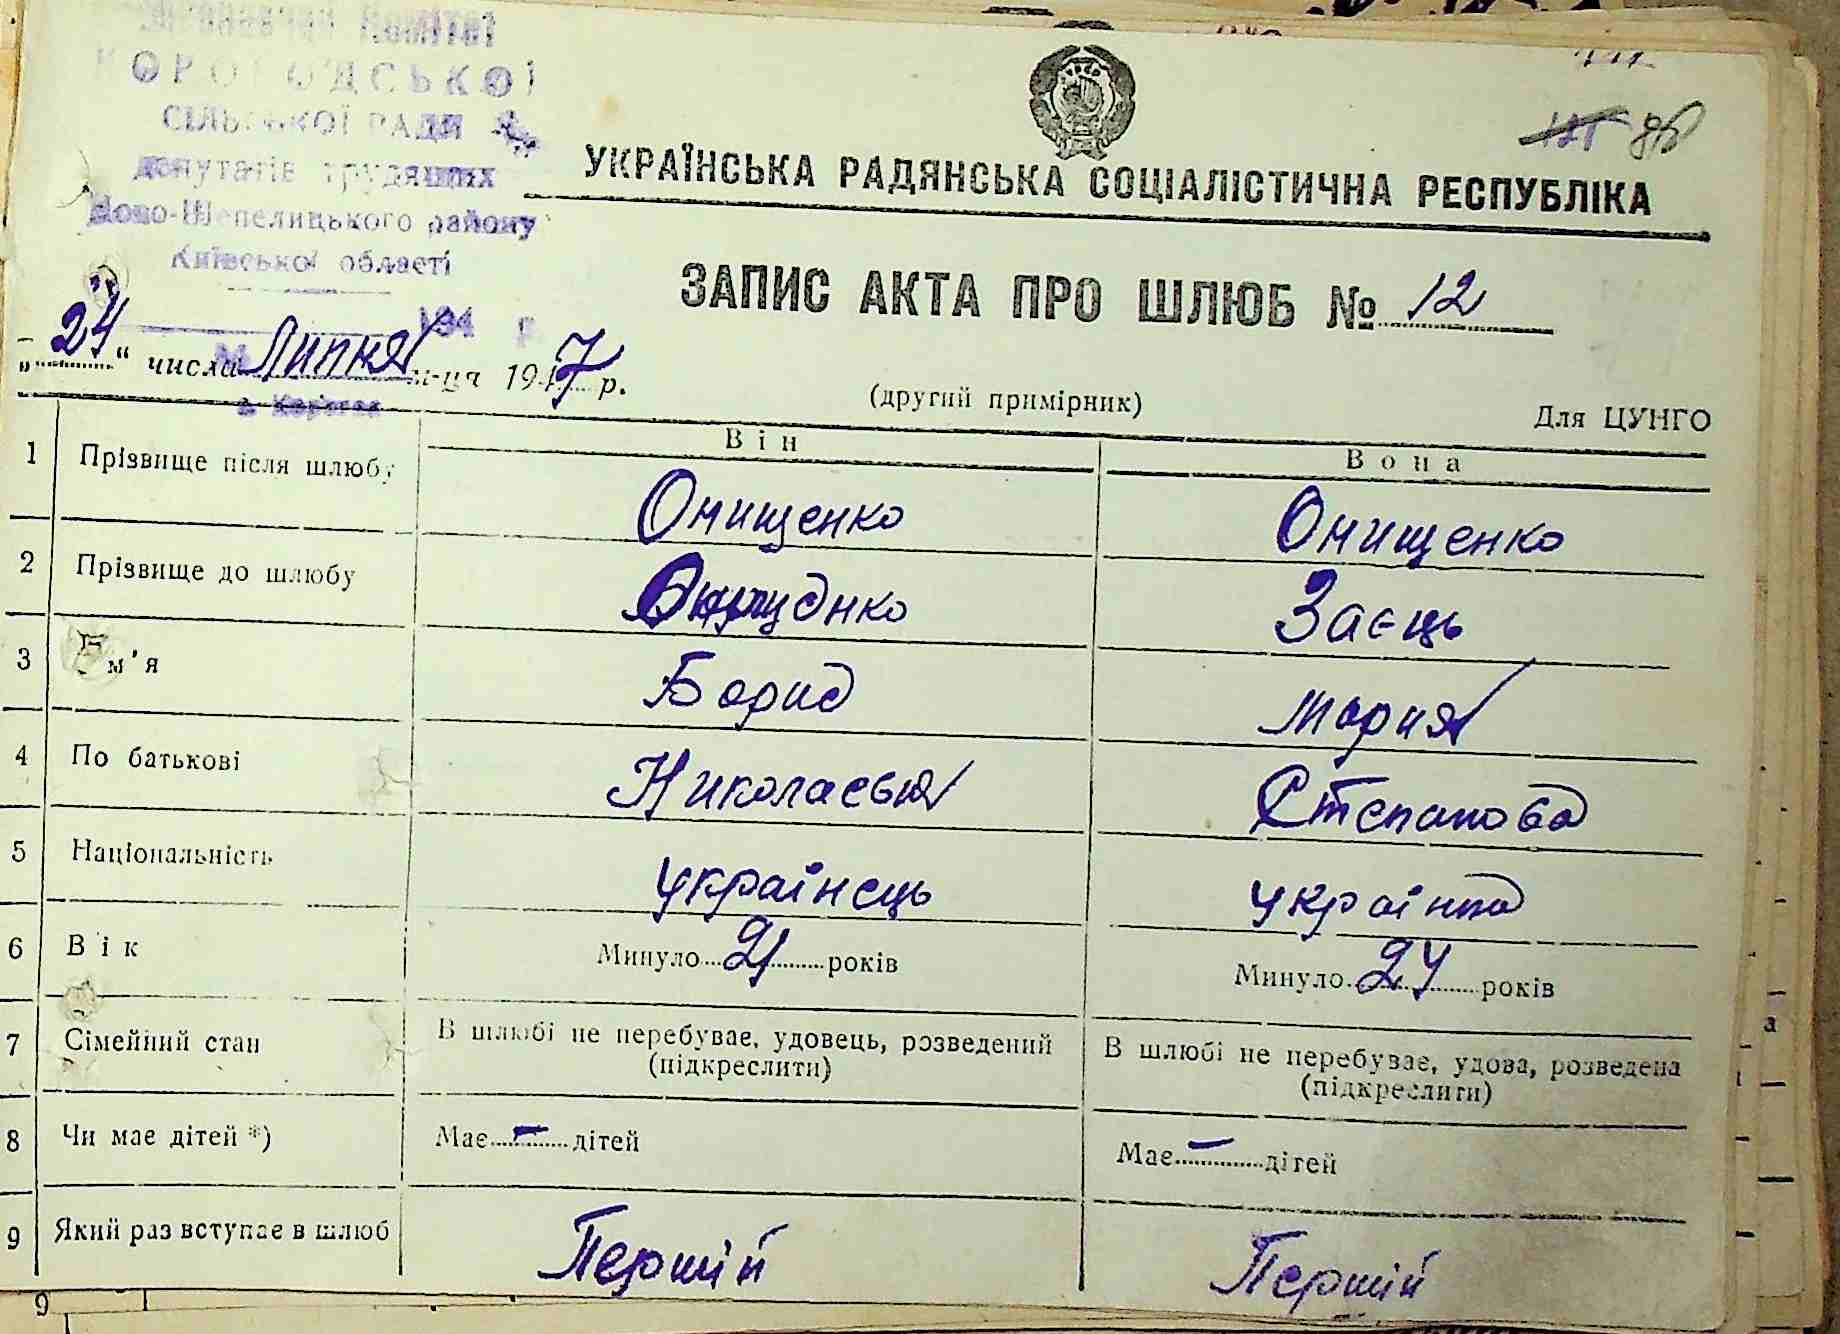 КОРОГОДСЬКОЇ
СІЛЬСЬКОЇ РАДИ
депутатів трудящих
Ново-Шепелицького району
Київської області
194 р.
125 96
УКРАЇНСЬКА РАДЯНСЬКА СОЦІАЛІСТИЧНА РЕСПУБЛІКА
ЗАПИС АКТА ПРО ШЛЮБ № 12
„24“ числа Липня м-ця 1947 р.
(другий примірник)
Для ЦУНГО
Він Вона
1 Прізвище після шлюбу Онищенко Онищенко
2 Прізвище до шлюбу Онищенко Заєць
3 Ім'я Борис Мария
4 По батькові Николаевия Степанова
5 Національність українець українка
6 Вік Минуло 21 років Минуло 24 років
7 Сімейний стан В шлюбі не перебуває, удовець, розведений В шлюбі не перебуває, удова, розведена
(підкреслити) (підкреслити)
8 Чи має дітей *) Має – дітей Має – дітей
9 Який раз вступає в шлюб Першій Першій
9